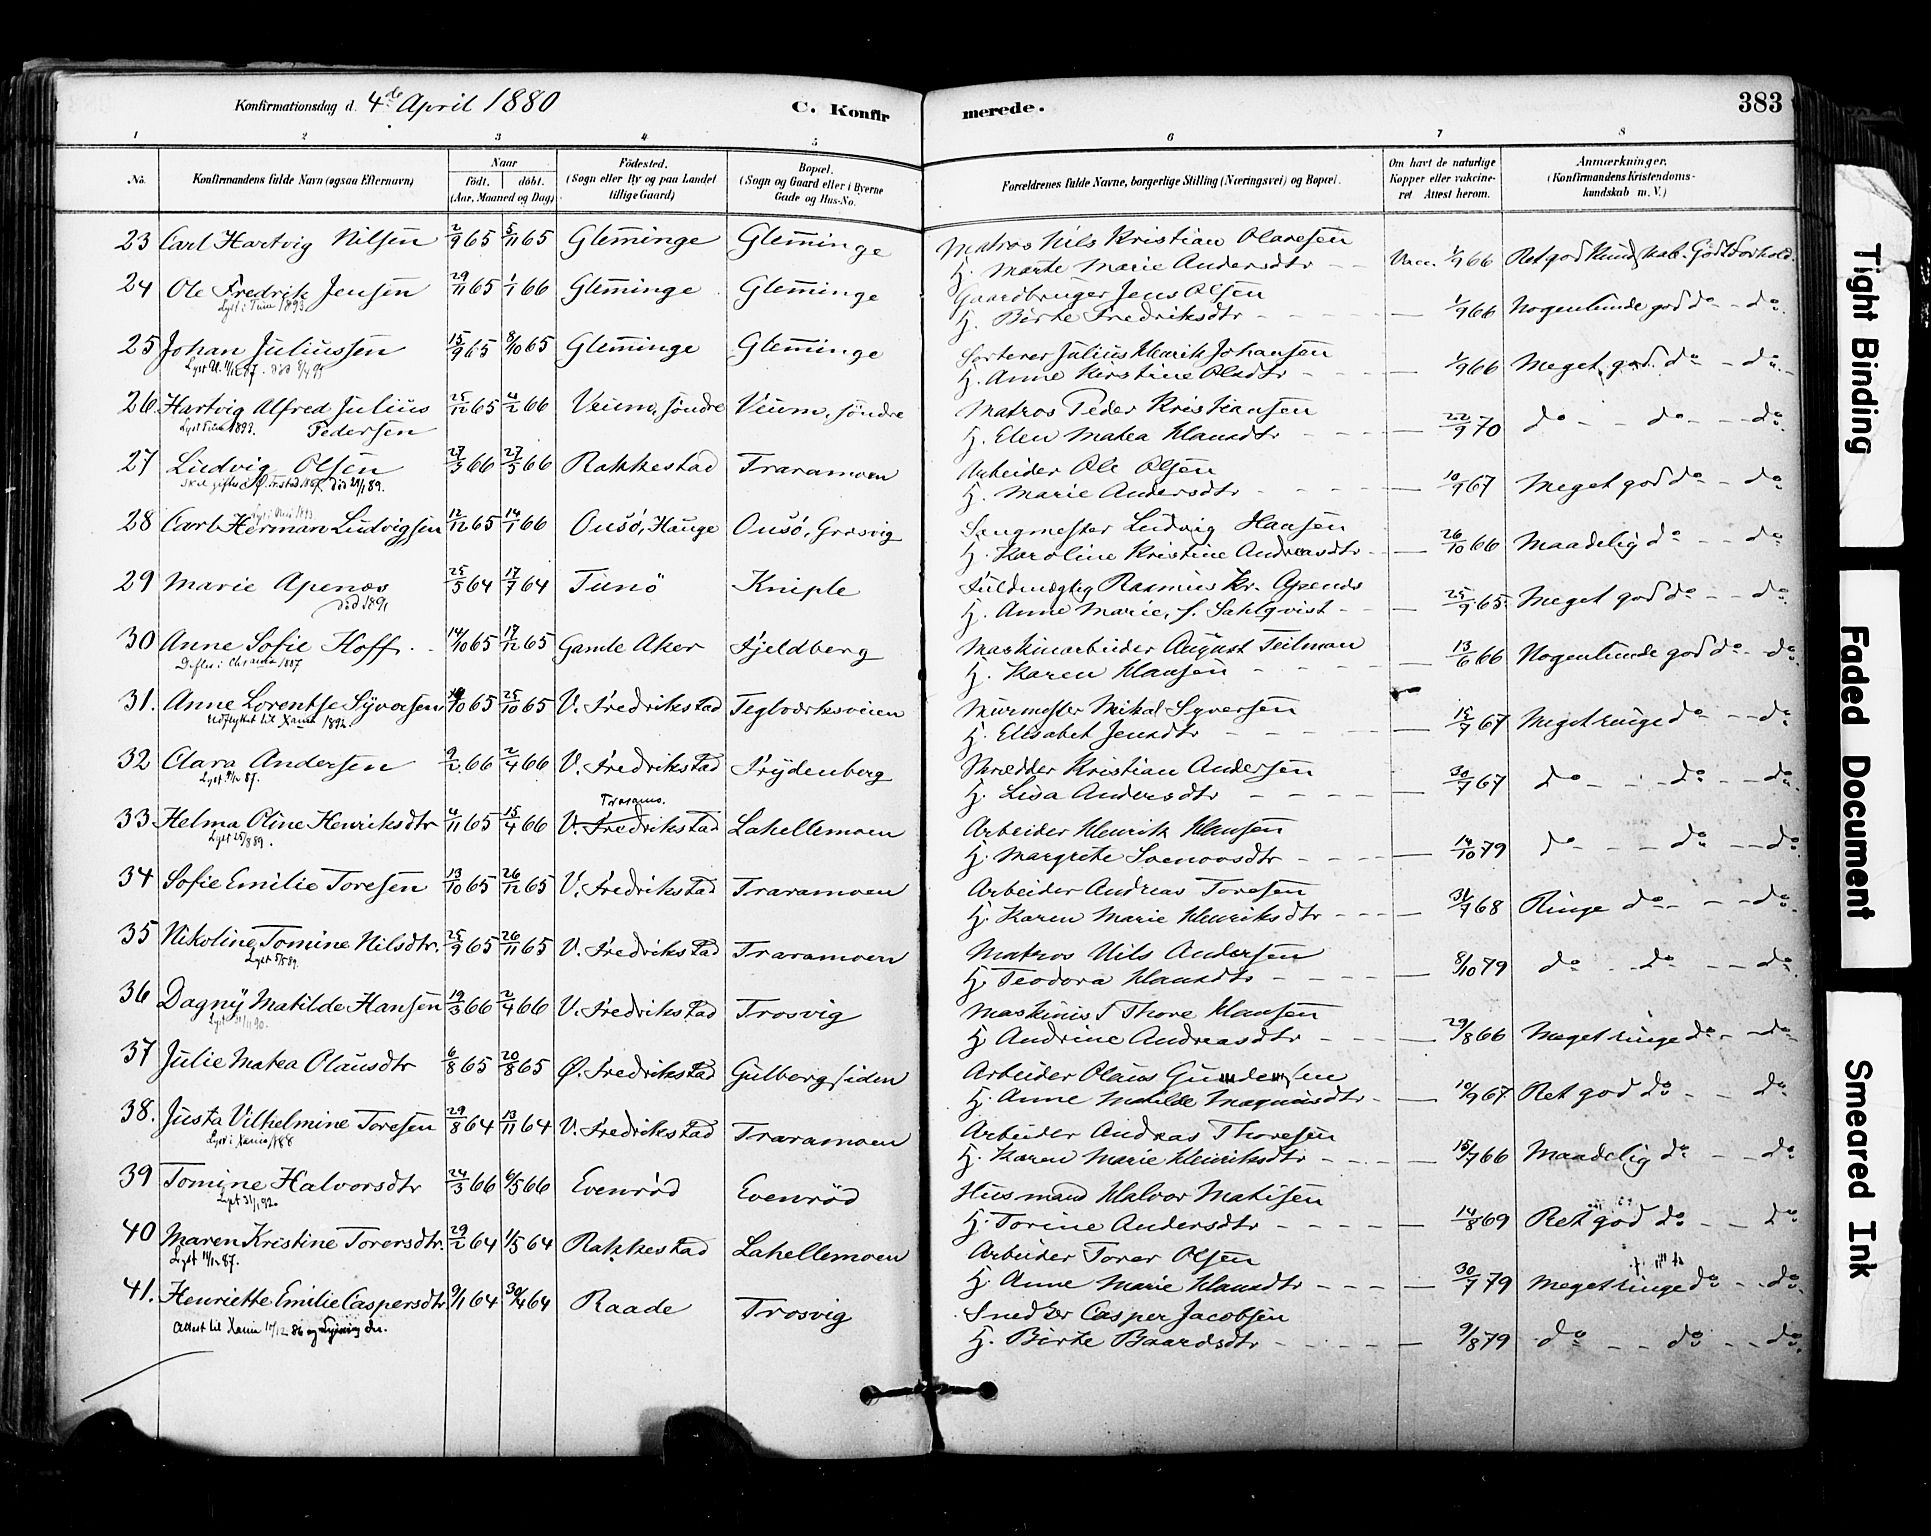 Konfirmationsdag d. 4de April 1880
C. Konfirmerede.
383
1 2 3 4 5 6 7 8
No. Konfirmandens fulde Navn (ogsaa Efternavn) Naar født. døbt. (Aar, Maaned og Dag) Födested. (Sogn eller By og paa Landet tillige Gaard) Bopæl. (Sogn og Gaard eller i Byerne Gade og Hus-No. Forældrenes fulde Navne, borgerlige Stilling (Næringsvei) og Bopæl. Om havt de naturlige Kopper eller vakcineret Attest herom. Anmærkninger. (Konfirmandens Kristendomskundskab m. V.)
23 Carl Hartvig Nilsen 2/9 65 5/11 65 Glemminge Glemminge Matros Nils Kristian Olavesen
H. Marte Marie Andersdtr Vacc. 1/9 66 Ret god Kundskab. Godt Forhold.
24 Ole Fredrik Jensen 29/11 65 1/1 66 Glemminge Glemminge Gaardbruger Jens Olsen
Lyst i 1893
H. Birte Fredriksdtr 1/9 66 Nogenlunde god do do
25 Johan Juliussen 15/9 65 8/10 65 Glemminge Glemminge Sorterer Julius Henrik Johansen
H. Anne Kirstine Olsdtr 1/9 66 Meget god do do
26 Hartvig Alfred Julius Pedersen 25/12 65 4/2 66 Veum, söndre Veum, söndre Matros Peder Kristiansen
H. Elen Matea Hansdtr 22/9 70 do do do
27 Ludvig Olsen 27/3 66 27/5 66 Rakkestad Traramoen Arbeider Ole Olsen
H. Marie Andersdtr 10/9 67 Meget god do do
28 Carl Herman Ludvigsen 12/12 65 14/1 66 Onsö, Hauge Onsö, Græsvig Ludvig Hansen
H. Karoline Kristine Andreasdtr 26/10 66 Maadelig do do
29 Marie Apenæs 25/5 64 17/7 64 Tunö Kniple Fuldmægtig Rasmus Kr. Apenæs
död 1891
H. Anne Marie, f. Sahlqvist 25/9 65 Meget god do do
30 Anne Sofie Hoff. 14/10 65 17/12 65 Gamle Aker Fjeldberg Maskinarbeider August Teilman
H. Karen Hansen 13/6 66 Nogenlunde god do do
31. Anne Lorentse Syversen 10/10 65 25/10 65 V. Fredrikstad Teglværksveien Murmester Mikal Syversen
Udflyttet til Xania 1892.
H. Elisabet Jensdtr 15/7 67 Meget ringe do do
32 Clara Andersen 9/2 66 2/4 66 V. Fredrikstad Frydenberg Skrædder Kristian Andersen
H. Lisa Andersdtr 30/7 67 do do do
33 Helma Oline Henriksdtr 4/11 65 15/4 66 V. Fredrikstad Lahellemoen Arbeider Henrik Hansen
Lyst 25/8 89.
H. Margrete 14/10 79 do do do
34 Sofie Emilie Toresen 13/10 65 26/12 65 V. Fredrikstad Traramoen Arbeider Andreas Toresen
H. Karen Marie Henriksdtr 31/7 68 Ringe do do
35 Nikoline Tomine Nilsdtr. 25/9 65 26/11 65 V. Fredrikstad Traramoen Matros Nils Andersen
Lyst 5/5 89.
H. Teodora Hansdtr 8/10 79 do do do
36 Dagny Matilde Hansen 19/3 66 2/4 66 V. Fredrikstad Trosvig Maskinist Thore Hansen
H. Andrine Andreasdtr 29/8 66 Meget ringe do do
37 Julie Matea Olausdtr 6/8 65 20/8 65 Ø. Fredrikstad Gulbergsiden Arbeider Olaus Gundersen
H. Anne Matilde Magnusdtr 10/9 67 Ret god do do
38. Justa Vilhelmine Toresen 29/8 64 13/11 64 V. Fredrikstad Traramoen Arbeider Andreas Thoresen
Lyst i Xania 1888
H. Karen Marie Henriksdtr 15/7 66 Maadelig do do
39 Tomine Halvorsdtr 24/3 66 6/5 66 Evenröd Evenröd Husmand Halvor Matisen
Lyst 31/1 92
H. Torine Andersdtr 14/8 69 Ret god do do
40 Maren Kristine Torersdtr. 29/2 64 1/5 64 Rakkestad Lahellemoen Arbeider Torer Olsen
Lyst 11/12 87.
H. Anne Marie Hansdtr 30/7 79 Meget ringe do do
41. Henriette Emilie Caspersdtr 9/1 64 30/4 64 Raade Trosvig Snedker Casper Jacobsen
Attest til Xania 11/12 86 og Lysning do.
H. Birte Baardsdtr 9/8 79 do do do
Tight Binding
Faded Document
Smeared Ink